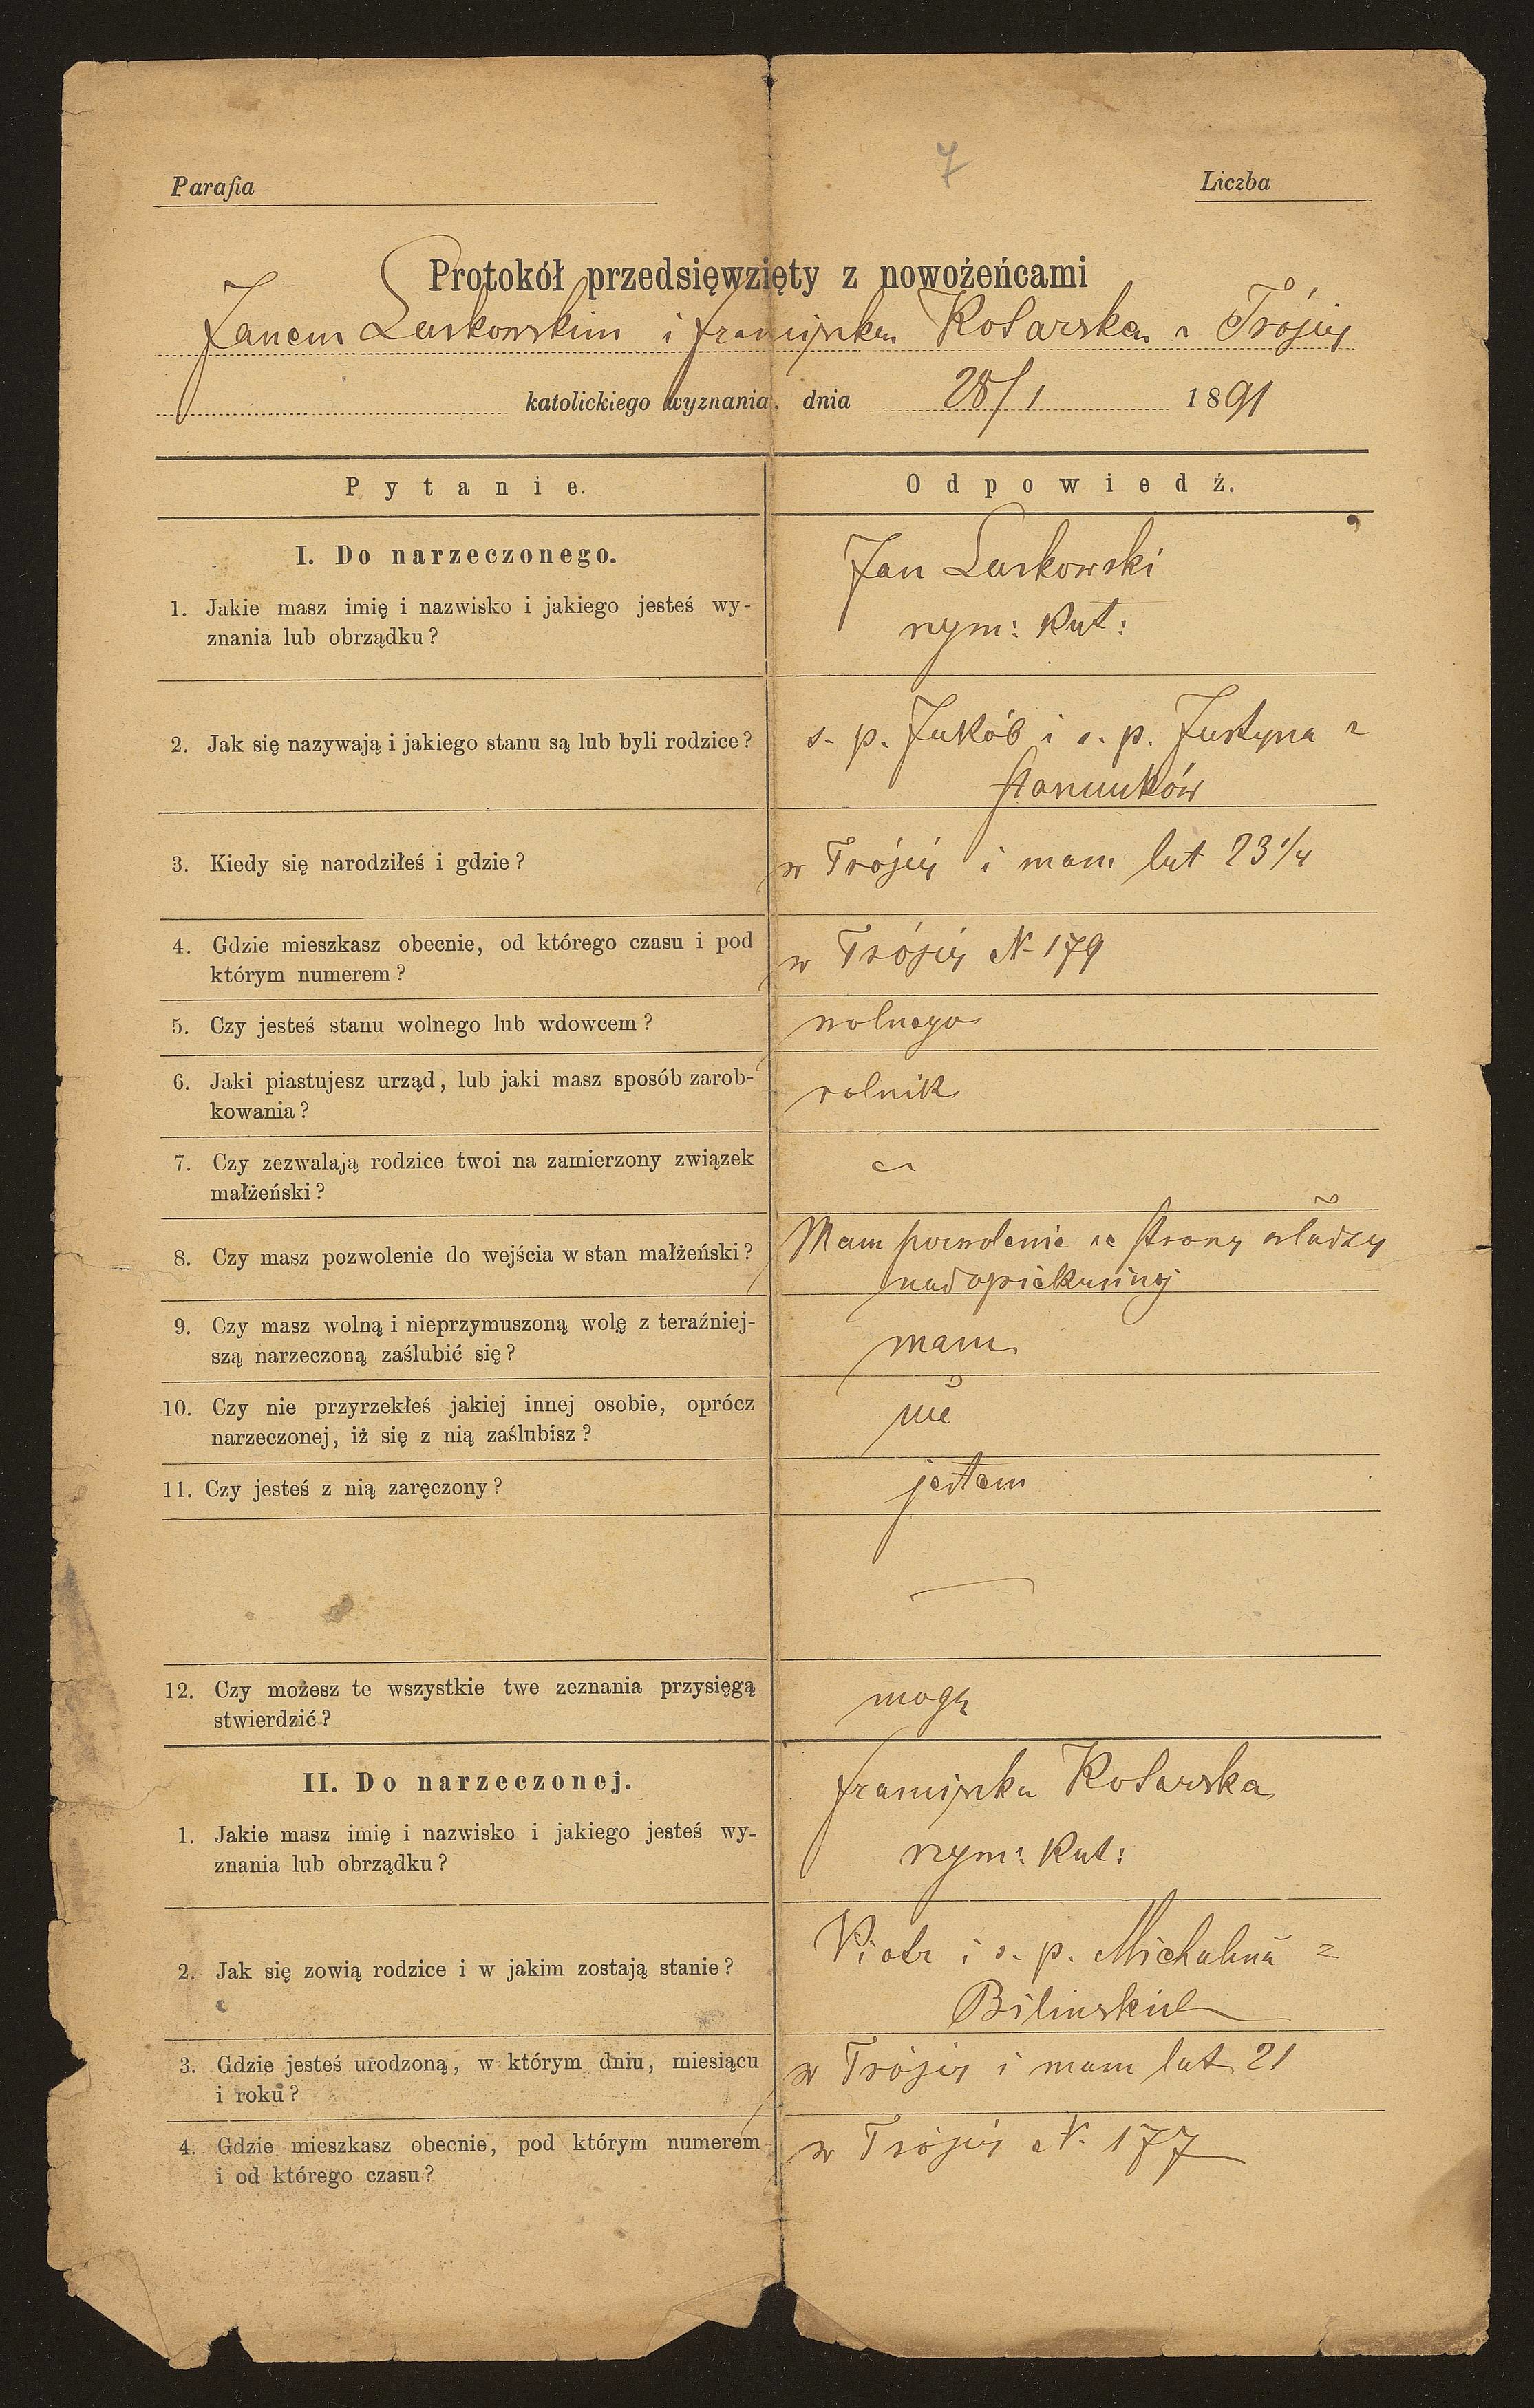 7
Parafia
Liczba
Protokół przedsięwzięty z nowożeńcami
Janem Laskowskim i Franciszką Kotarską z Trójcy
katolickiego wyznania, dnia 28/1 1891
Pytanie.
Odpowiedź.
I. Do narzeczonego.
Jan Laskowski
1. Jakie masz imię i nazwisko i jakiego jesteś wy-
znania lub obrządku?
rzym: Kat:
2. Jak się nazywają i jakiego stanu są lub byli rodzice?
s. p. Jakób i s. p. Justyna z
3. Kiedy się narodziłeś i gdzie?
w Trójcy i mam lat 23 1/4
4. Gdzie mieszkasz obecnie, od którego czasu i pod
którym numerem?
w Trójcy N 179
5. Czy jesteś stanu wolnego lub wdowcem?
wolnego
6. Jaki piastujesz urząd, lub jaki masz sposób zarob-
kowania?
rolnik
7. Czy zezwalają rodzice twoi na zamierzony związek
małżeński?
8. Czy masz pozwolenie do wejścia w stan małżeński?
Mam pozwolenie ze strony władzy
nadopiekuńczej
9. Czy masz wolną i nieprzymuszoną wolę z teraźniej-
szą narzeczoną zaślubić się?
mam
10. Czy nie przyrzekłeś jakiej innej osobie, oprócz
narzeczonej, iż się z nią zaślubisz?
nie
11. Czy jesteś z nią zaręczony?
jestem
12. Czy możesz te wszystkie twe zeznania przysięgą
stwierdzić?
mogę
II. Do narzeczonej.
Franciszka Kotarska
1. Jakie masz imię i nazwisko i jakiego jesteś wy-
znania lub obrządku?
rzym: Kat:
2. Jak się zowią rodzice i w jakim zostają stanie?
Piotr i s. p. Michalina z
Bilinskich
3. Gdzie jesteś urodzoną, w którym dniu, miesiącu
i roku?
w Trójcy i mam lat 21
4. Gdzie mieszkasz obecnie, pod którym numerem
i od którego czasu?
w Trójcy N. 177